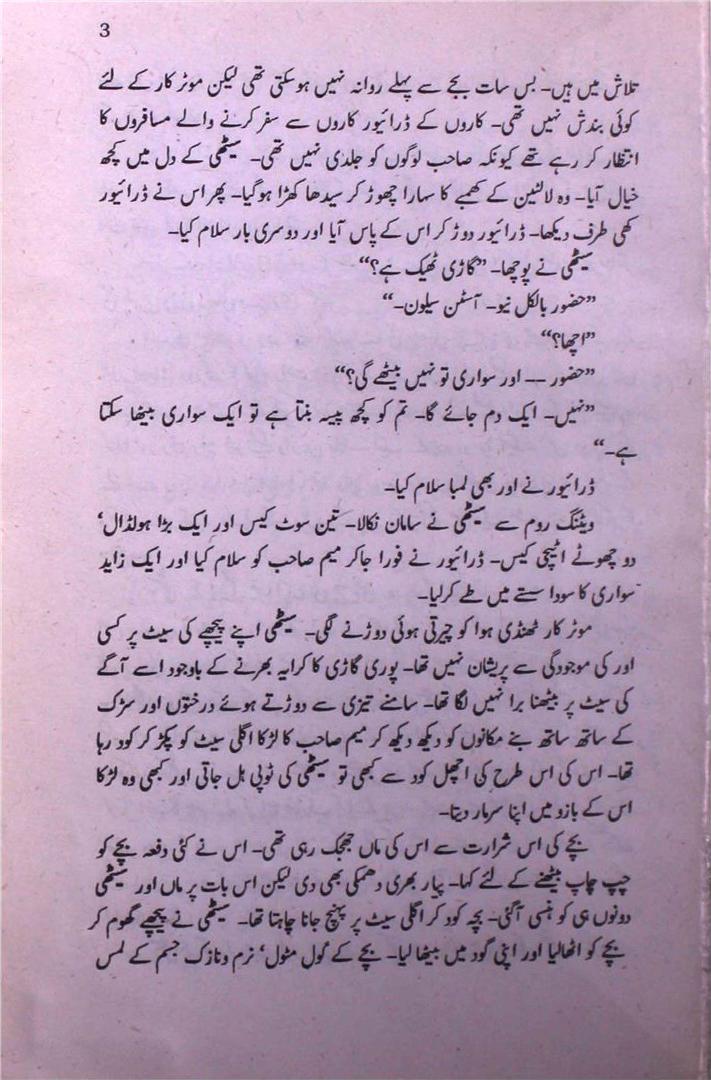 3
تلاش میں ہیں۔ بس سات بجے سے پہلے روانہ نہیں ہو سکتی تھی لیکن موٹر کار کے لئے
کوئی بندش نہیں تھی۔ کاروں کے ڈرائیور کاروں سے سفر کرنے والے مسافروں کا
انتظار کر رہے تھے کیونکہ صاحب لوگوں کو جلدی نہیں تھی۔ سیٹھی کے دل میں کچھ
خیال آیا۔ وہ لالٹین کے کھمبے کا سہارا چھوڑ کر سیدھا کھڑا ہوگیا۔ پھر اس نے ڈرائیور
کی طرف دیکھا۔ ڈرائیور دوڑ کر اس کے پاس آیا اور دوسری بار سلام کیا۔
سیٹھی نے پوچھا۔ ”گاڑی ٹھیک ہے؟“
”حضور بالکل نیو۔ آسٹن سیلون۔“
”اچھا؟“
”حضور ــ اور سواری تو نہیں بیٹھے گی؟“
”نہیں۔ ایک دم جائے گا۔ تم کو کچھ پیسہ بنتا ہے تو ایک سواری بیٹھا سکتا
ہے۔“
ڈرائیور نے اور بھی لمبا سلام کیا۔
ویٹنگ روم سے سیٹھی نے سامان نکالا۔ تین سوٹ کیس اور ایک بڑا ہولڈال‘
دو چھوٹے اٹیچی کیس۔ ڈرائیور نے فورا جاکر میم صاحب کو سلام کیا اور ایک زاید
سواری کا سودا سستے میں طے کرلیا۔
موٹر کار ٹھنڈی ہوا کو چیرتی ہوئی دوڑنے لگی۔ سیٹھی اپنے پیچھے کی سیٹ پر کسی
اور کی موجودگی سے پریشان نہیں تھا۔ پوری گاڑی کا کرایہ بھرنے کے باوجود اسے آگے
کی سیٹ پر بیٹھنا برا نہیں لگا تھا۔ سامنے تیزی سے دوڑتے ہوئے درختوں اور سڑک
کے ساتھ ساتھ بنے مکانوں کو دیکھ دیکھ کر میم صاحب کا لڑکا اگلی سیٹ کو پکڑ کر کود رہا
تھا۔ اس کی اس طرح کی اچھل کود سے کبھی تو سیٹھی کی ٹوپی ہل جاتی اور کبھی وہ لڑکا
اس کے بازو میں اپنا سر مار دیتا۔
بچے کی اس شرارت سے اس کی ماں جھجک رہی تھی۔ اس نے کئی دفعہ بچے کو
چپ چاپ بیٹھنے کے لئے کہا۔ پیار بھری دھمکی بھی دی لیکن اس بات پر ماں اور سیٹھی
دونوں ہی کو ہنسی آگئی۔ بچہ کود کر اگلی سیٹ پر پہنچ جانا چاہتا تھا۔ سیٹھی نے پیچھے گھوم کر
بچے کو اٹھالیا اور اپنی گود میں بیٹھا لیا۔ بچے کے گول مٹول‘ نرم ونازک جسم کے لمس